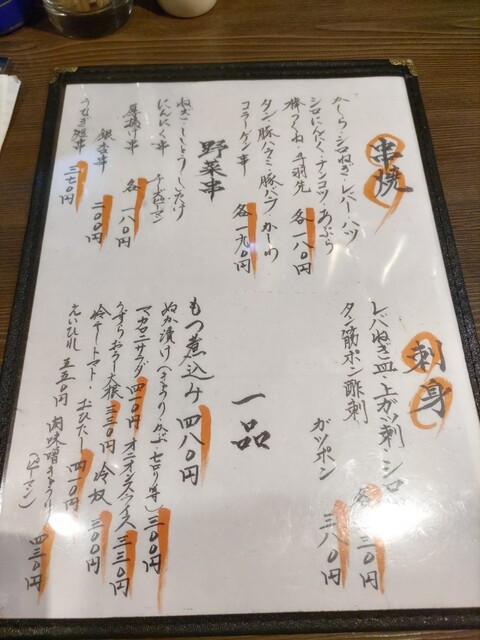 串焼
かしら・シロねぎ・レバー・ハツ
シロにんにく・ナンコツ・あぶら
棒つくね・手羽先 各一八〇円
タン・豚ハラミ・豚バラ・かしわ
コラーゲン串 各一九〇円
野菜串
ねぎ・ししとう・しいたけ
にんにく串 チーズピーマン
厚揚げ串 各一八〇円
銀杏串 二〇〇円
うなぎ肝串 三七〇円
刺身
レバねぎ皿・上ガツ刺・シロ
タン筋ポン酢刺 各 三〇円
ガツポン 三八〇円
一品
もつ煮込み 四八〇円
ぬか漬け(きゅうり・かぶ・セロリ等) 三〇〇円
マカロニサラダ 四一〇円 オニオンスライス 三三〇円
うずらおろし大根 三三〇円 冷奴 三〇〇円
冷やしトマト・おひたし 四一〇円
えいひれ 五五〇円 肉味噌きゅうり 四三〇円
(ピーマン)